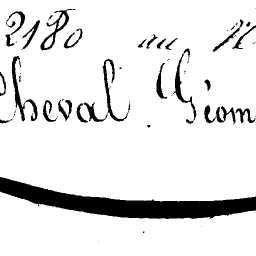 2180 au
Cheval Géom